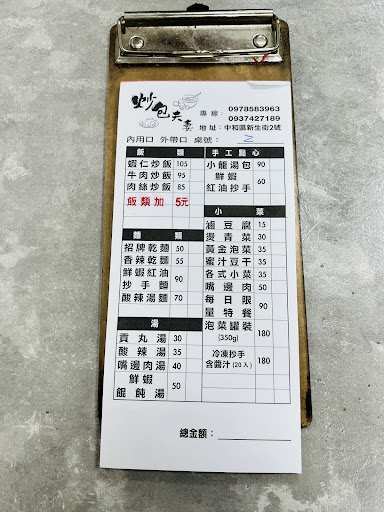 炒包夫妻
專線: 0978583963
0937427189
地址:中和區新生街2號
內用口 外帶口 桌號: 2
飯類
蝦仁炒飯 105
牛肉炒飯 95
肉絲炒飯 85
飯類加 5元
麵類
招牌乾麵 50
香辣乾麵 55
鮮蝦紅油
抄手麵 90
酸辣湯麵 70
湯
貢丸湯 30
酸辣湯 35
嘴邊肉湯 40
鮮蝦
餛飩湯 50
手工點心
小籠湯包 90
鮮蝦
紅油抄手 60
小菜
滷豆腐 15
燙青菜 30
黃金泡菜 35
蜜汁豆干 35
各式小菜 35
嘴邊肉 50
每日限
量特餐 90
泡菜罐裝
(350g) 180
冷凍抄手
含醬汁(20入) 180
總金額: